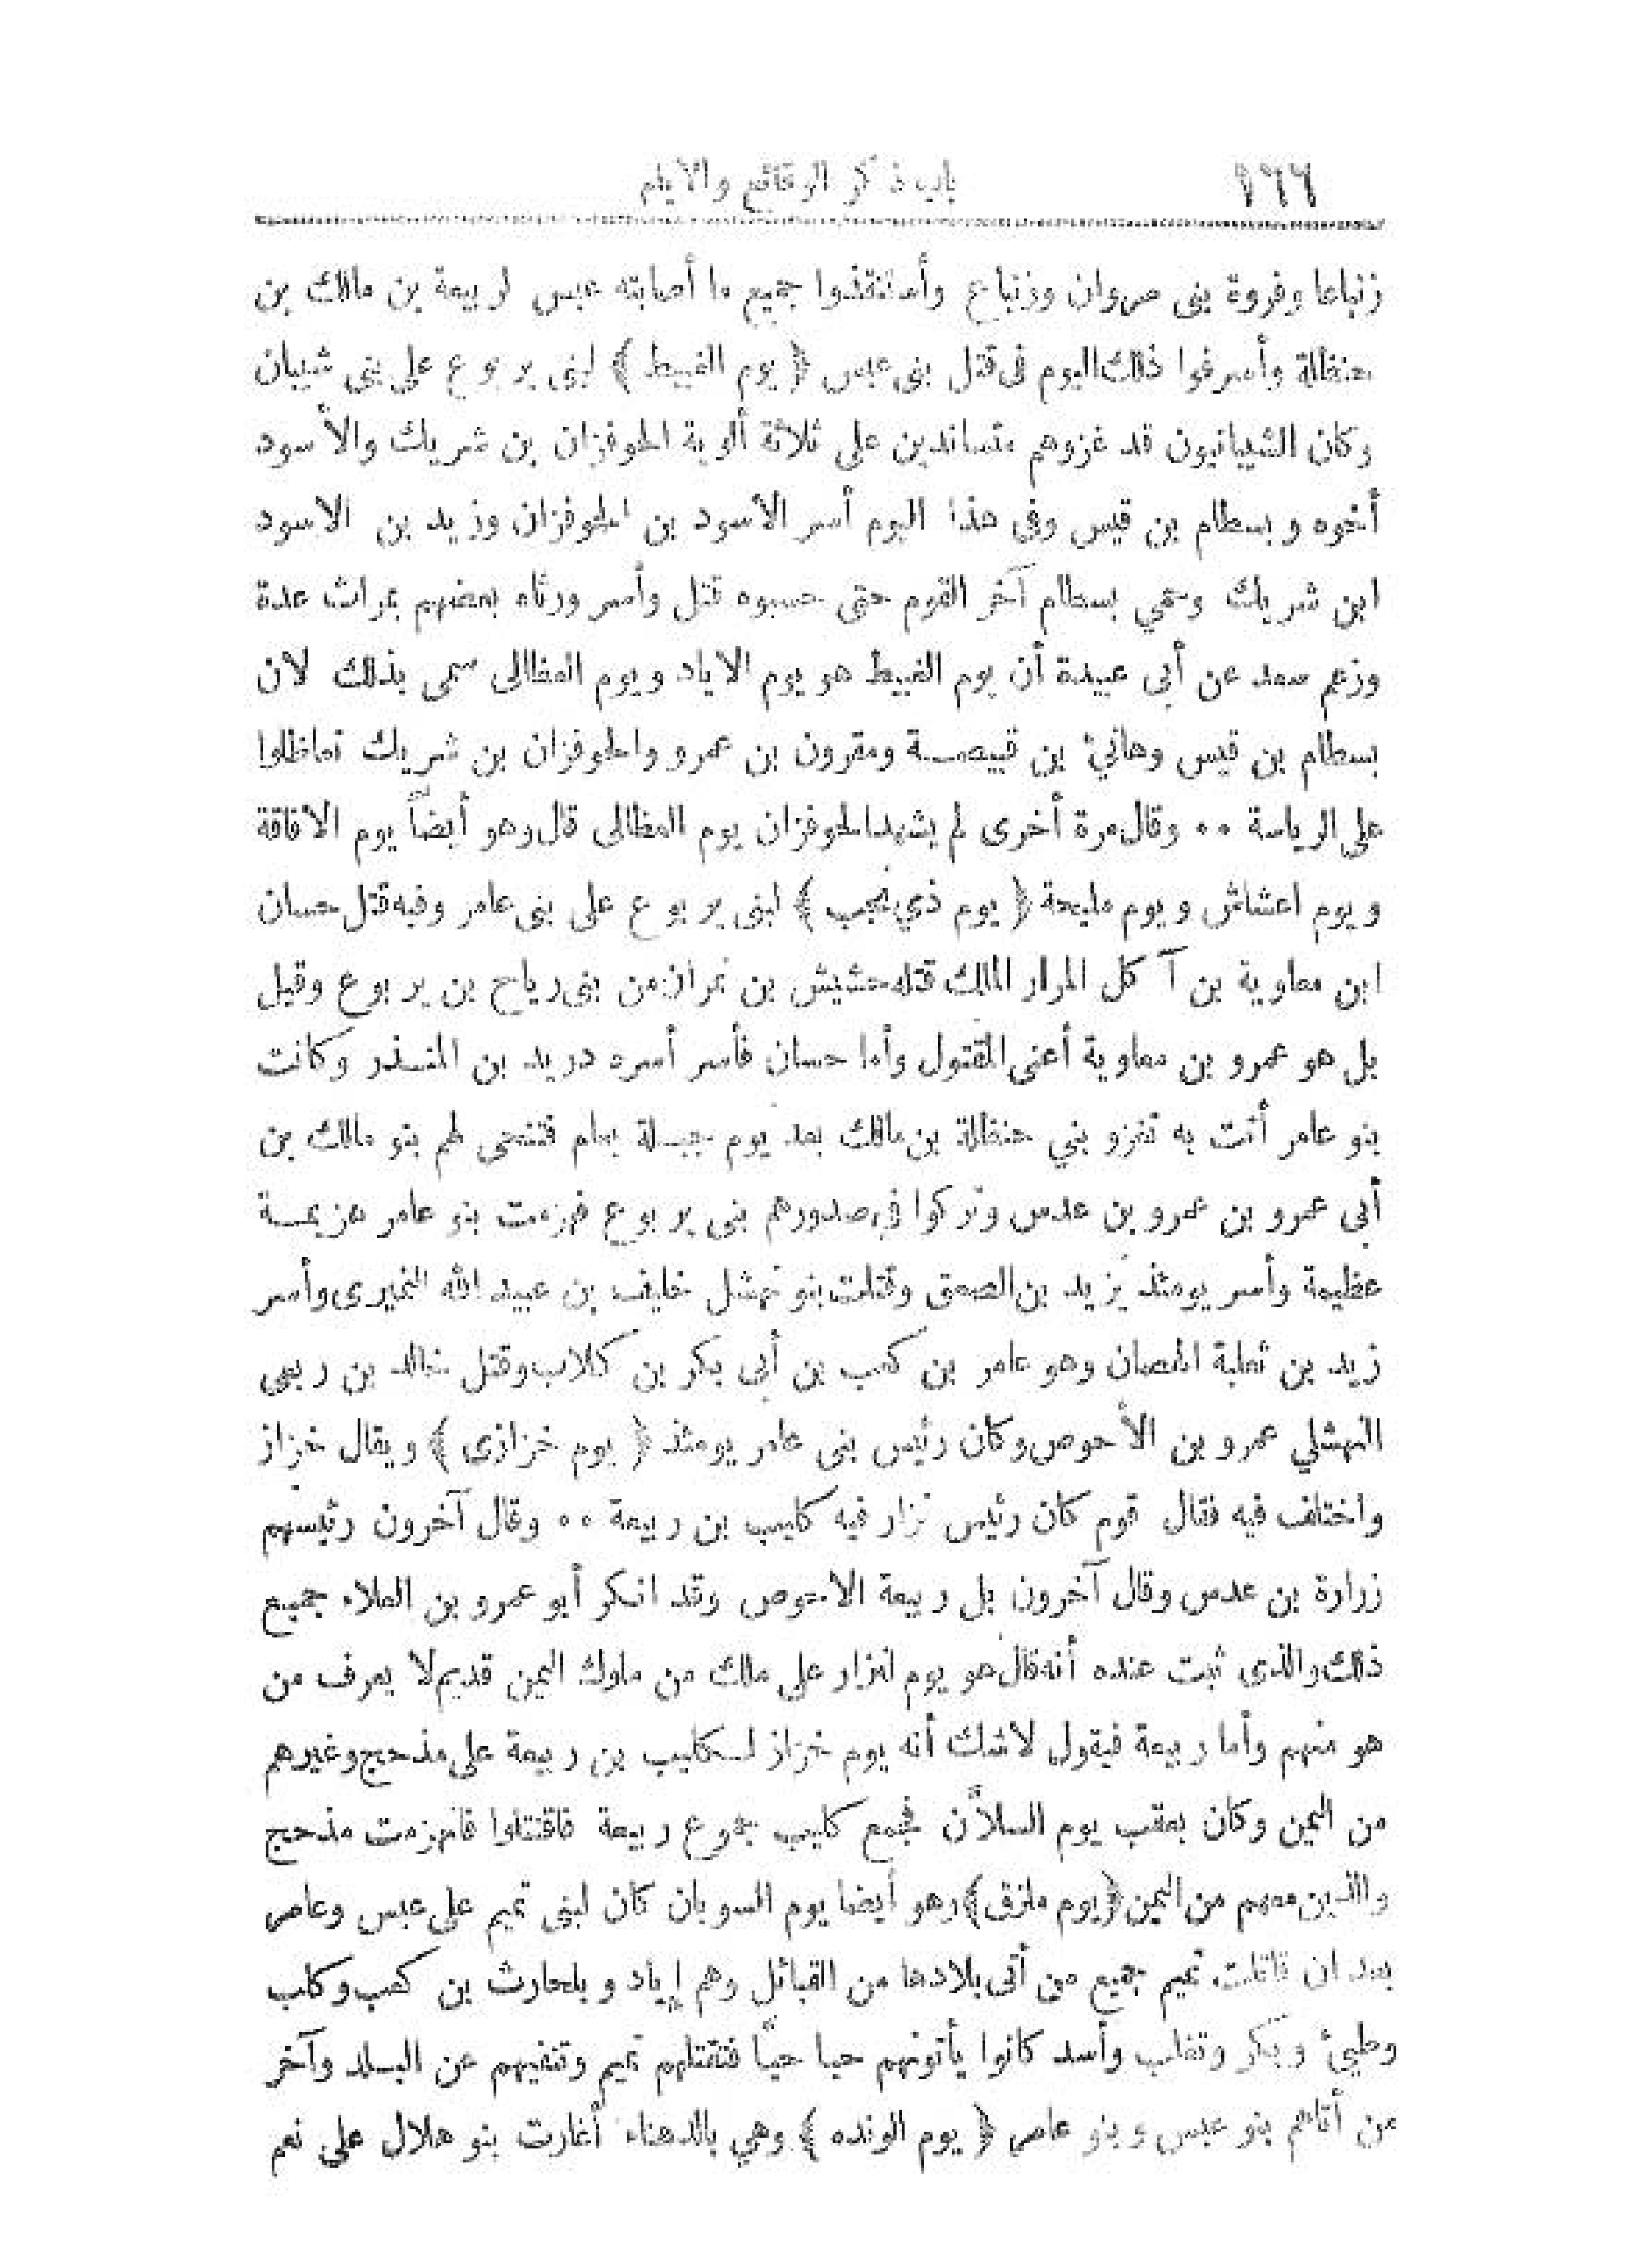 ١٦٦ باب ذكر الوقائع والأيام
زنباعا وفروة بنى مروان وزنباع وأستنقذوا جميع ما أصابته عبس لربيعة بن مالك بن
حنظلة وأسرفوا ذلك اليوم فى قتل بنى عبس ﴿ يوم الغبيط ﴾ لبنى يربوع على بنى شيبان
وكان الشيبانيون قد غزوهم متساندين على ثلاثة ألوية الحوفزان بن شريك والأسود
أخوه وبسطام بن قيس وفى هذا اليوم أسر الأسود بن الحوفزان وزيد بن الاسود
ابن شريك وحمي بسطام آخر القوم حتى حسبوه قتل وأسر ورثاه بعضهم بمراث عدة
وزعم سعد عن أبى عبيدة أن يوم الغبيط هو يوم الاياد ويوم العظالى سمى بذلك لان
بسطام بن قيس وهانئ بن قبيصة ومقرون بن عمرو والحوفزان بن شريك تعاظلوا
على الرياسة ٠٠ وقال مرة أخرى لم يشهد الحوفزان يوم العظالى قال وهو أيضاً يوم الافاقة
ويوم اعشاش ويوم مليحة ﴿ يوم ذي نجب ﴾ لبنى يربوع على بنى عامر وفيه قتل حسان
ابن معاوية بن آكل المرار الملك قتله حشيش بن نمران من بنى رياح بن يربوع وقيل
بل هو عمرو بن معاوية أعنى المقتول وأما حسان فأسر أسره دريد بن المنذر وكانت
بنو عامر أتت به تغزو بني حنظلة بن مالك بعد يوم جبلة بعام فتنحى لهم بنو مالك بن
أبى عمرو بن عمرو بن عدس وتركوا فى صدورهم بنى يربوع فهزمت بنو عامر هزيمة
عظيمة وأسر يومئذ يزيد بن الصعق وقتلت بنو نهشل خليف بن عبيد الله النميرى وأسر
زيد بن ثعلبة الهصان وهو عامر بن كعب بن أبى بكر بن كلاب وقتل خالد بن ربعى
النهشلي عمرو بن الأحوص وكان رئيس بنى عامر يومئذ ﴿ يوم خزازى ﴾ ويقال خزاز
واختلف فيه فقال قوم كان رئيس نزار فيه كليب بن ربيعة ٠٠ وقال آخرون رئيسهم
زرارة بن عدس وقال آخرون بل ربيعة الاحوص وقد انكر أبو عمرو بن العلاء جميع
ذلك والذى ثبت عنده أنه قال هو يوم لنزار على ملك من ملوك اليمن قديم لا يعرف من
هو منهم وأما ربيعة فيقول لاشك أنه يوم خزاز لكليب بن ربيعة على مذحج وغيرهم
من اليمن وكان بعقب يوم السلاّن فجمع كليب جموع ربيعة فاقتتلوا فانهزمت مذحج
والذين معهم من اليمن ﴿يوم ملزق﴾ وهو أيضا يوم السوبان كان لبنى تميم على عبس وعامر
بعد ان قاتلت تميم جميع من أتى بلادها من القبائل وهم إياد وبلحارث بن كعب وكلب
وطيئ وبكر وتغلب وأسد كانوا يأتونهم حيا حيّا فتقتلهم تميم وتنفيهم عن البلد وآخر
من أتاهم بنو عبس وبنو عامر ﴿ يوم الونده ﴾ وهي بالدهناء أغارت بنو هلال على نعم